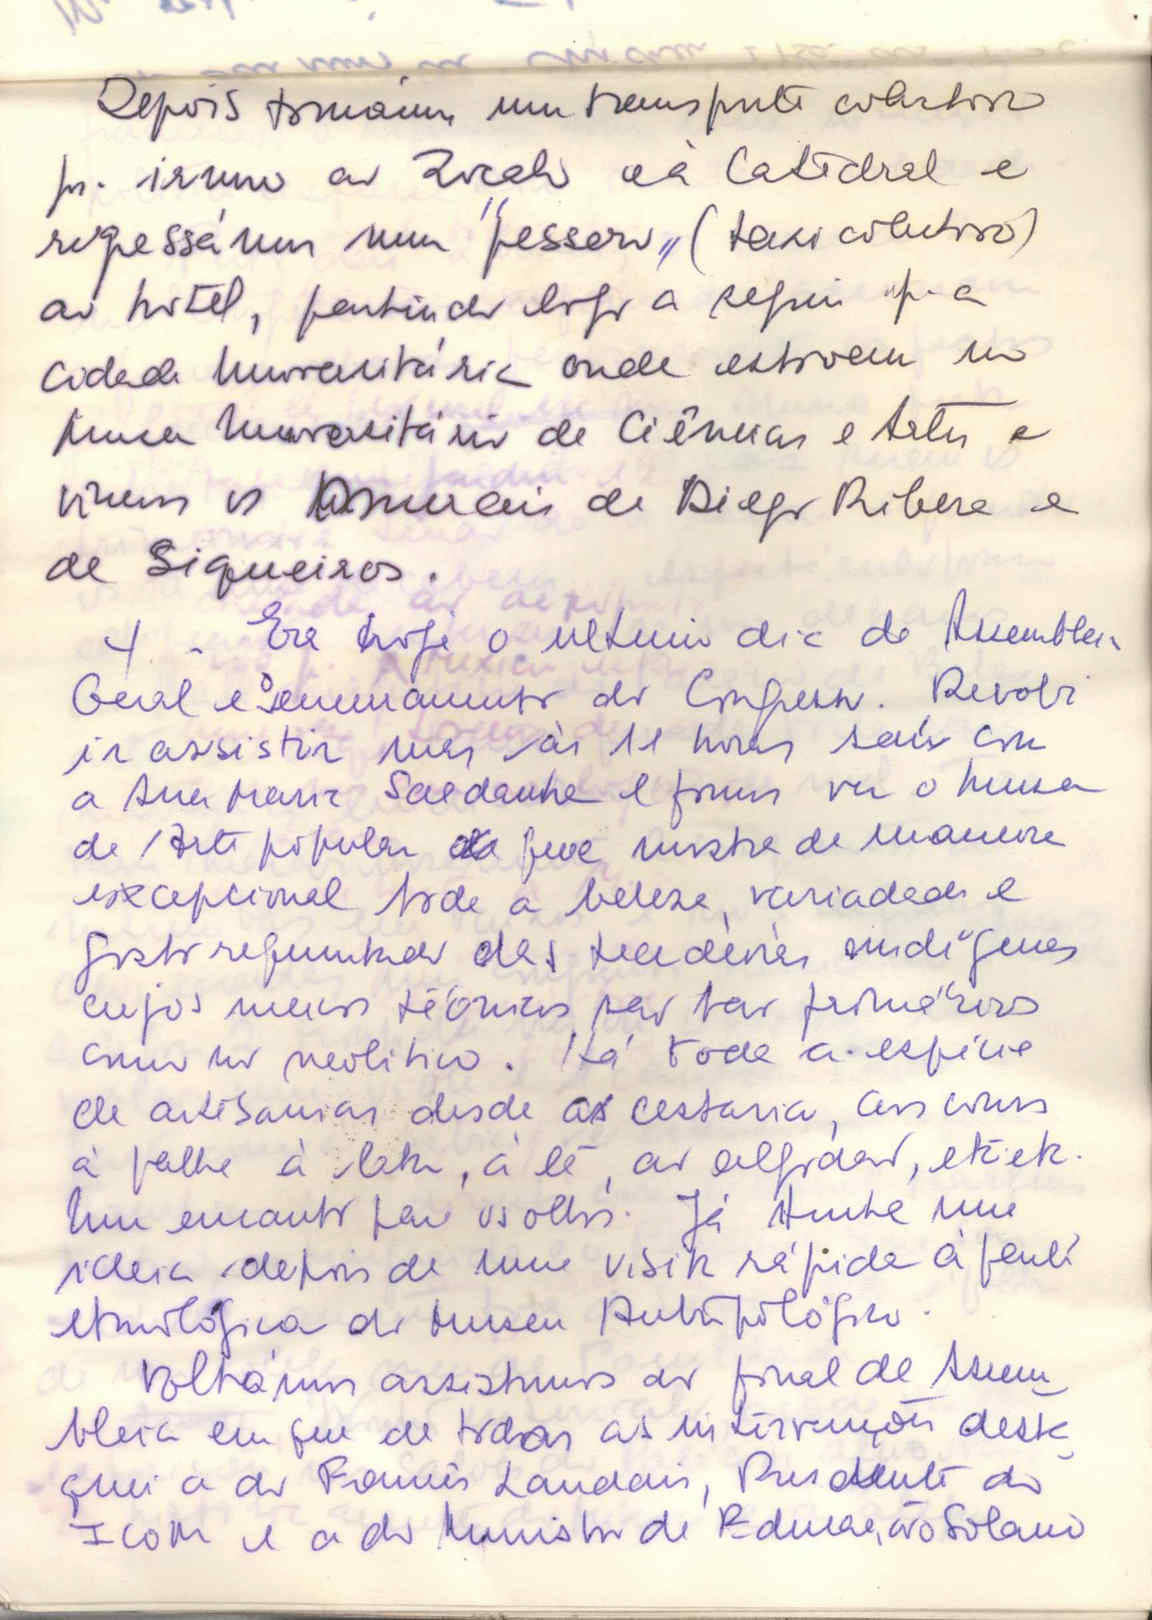 Depois tomámos um transporte colectivo
p. irmos ao Zocalo e à Catedral e
regressámos num "pessero" (taxi colectivo)
ao hotel, partindo logo a seguir p. a
cidade Universitária onde estivem no
Museu Universitário de Ciências e Artes e
vimos os murais de Diego Ribera e
de Siqueiros.
4 - Era hoje o ultimo dia da Assembleia
Geral e encerramento do Congresso. Resolvi
ir assistir mas às 11 horas saí com
a Ana Maria Saldanha e fomos ver o Museu
de Arte popular que mostra de maneira
excepcional toda a beleza, variedade e
gosto requintado das tecedeiras indígenas
cujos meios técnicos são tão primários
como no neolitico. Há toda a espécie
de artesanias desde a cestaria, aos couros
à palha à lata, à lã, ao algodão, etc etc.
Um encanto para os olhos. Já tinha uma
ideia depois de uma visita rápida à parte
etnológica do Museu Antropológico.
Voltámos assistimos ao final da Assem
bleia em que de todas as intervenções desta
quei a do Landais, Presidente do
ICOM e a do Ministro de Educação Solano